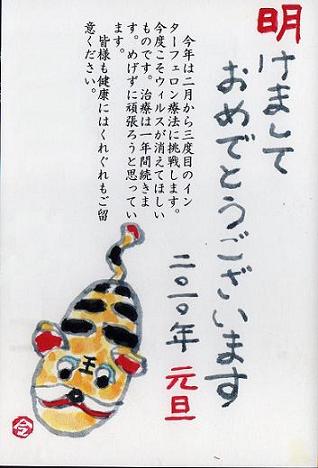 明けまして
おめでとうございます
二〇一〇年 元旦
今年は二月から三度目のイン
ターフェロン療法に挑戦します。
今度こそウィルスが消えてほしい
ものです。治療は一年間続きま
す。めげずに頑張ろうと思ってい
ます。
皆様も健康にはくれぐれもご留
意ください。
王